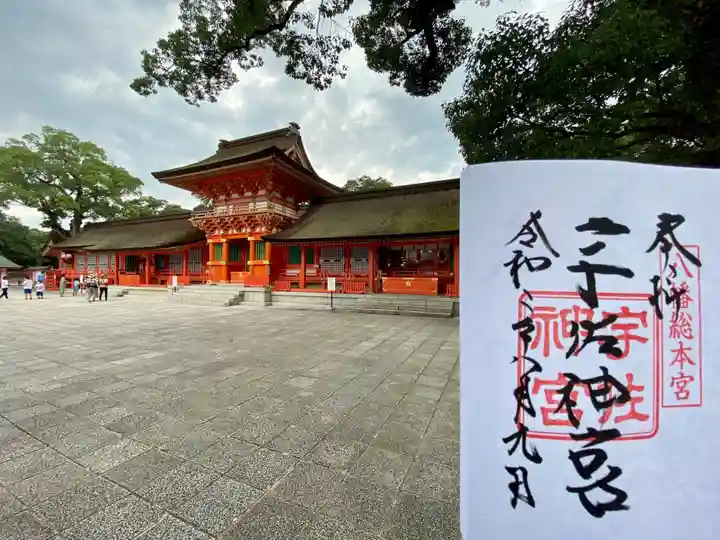 奉拝
八幡総本宮
宇佐神宮
宇佐
神宮
令和
八月九日